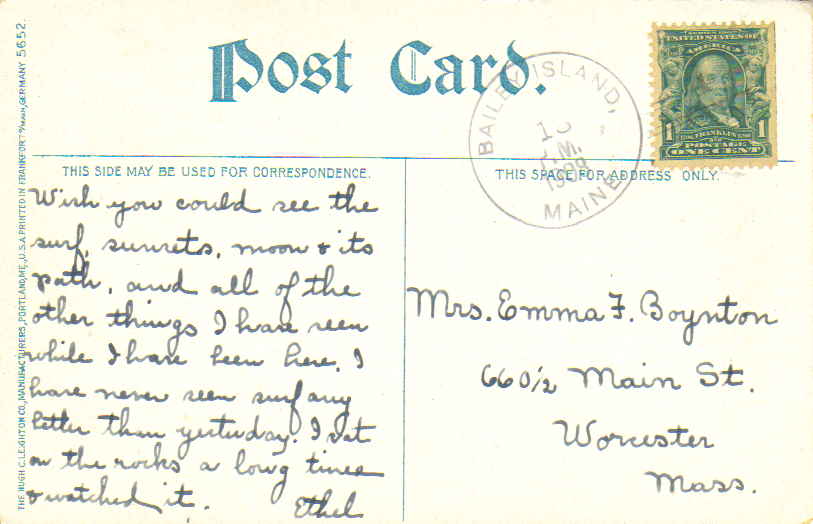 Post Card.
BAILEY ISLAND,
P.M.
MAINE
UNITED STATES OF
AMERICA
1 FRANKLIN 1
POSTAGE
ONE CENT
THIS SIDE MAY BE USED FOR CORRESPONDENCE.
THIS SPACE FOR ADDRESS ONLY.
Wish you could see the
surf, sunsets, moon & its
path, and all of the
other things I have seen
while I have been here. I
have never seen surf any
better than yesterday. I sat
on the rocks a long time
& watched it. Ethel
Mrs. Emma F. Boynton
660 1/2 Main St.
Worcester
Mass.
THE HUGH C. LEIGHTON CO., MANUFACTURERS, PORTLAND, ME., U.S.A. PRINTED IN FRANKFORT a/MAIN, GERMANY 5652.